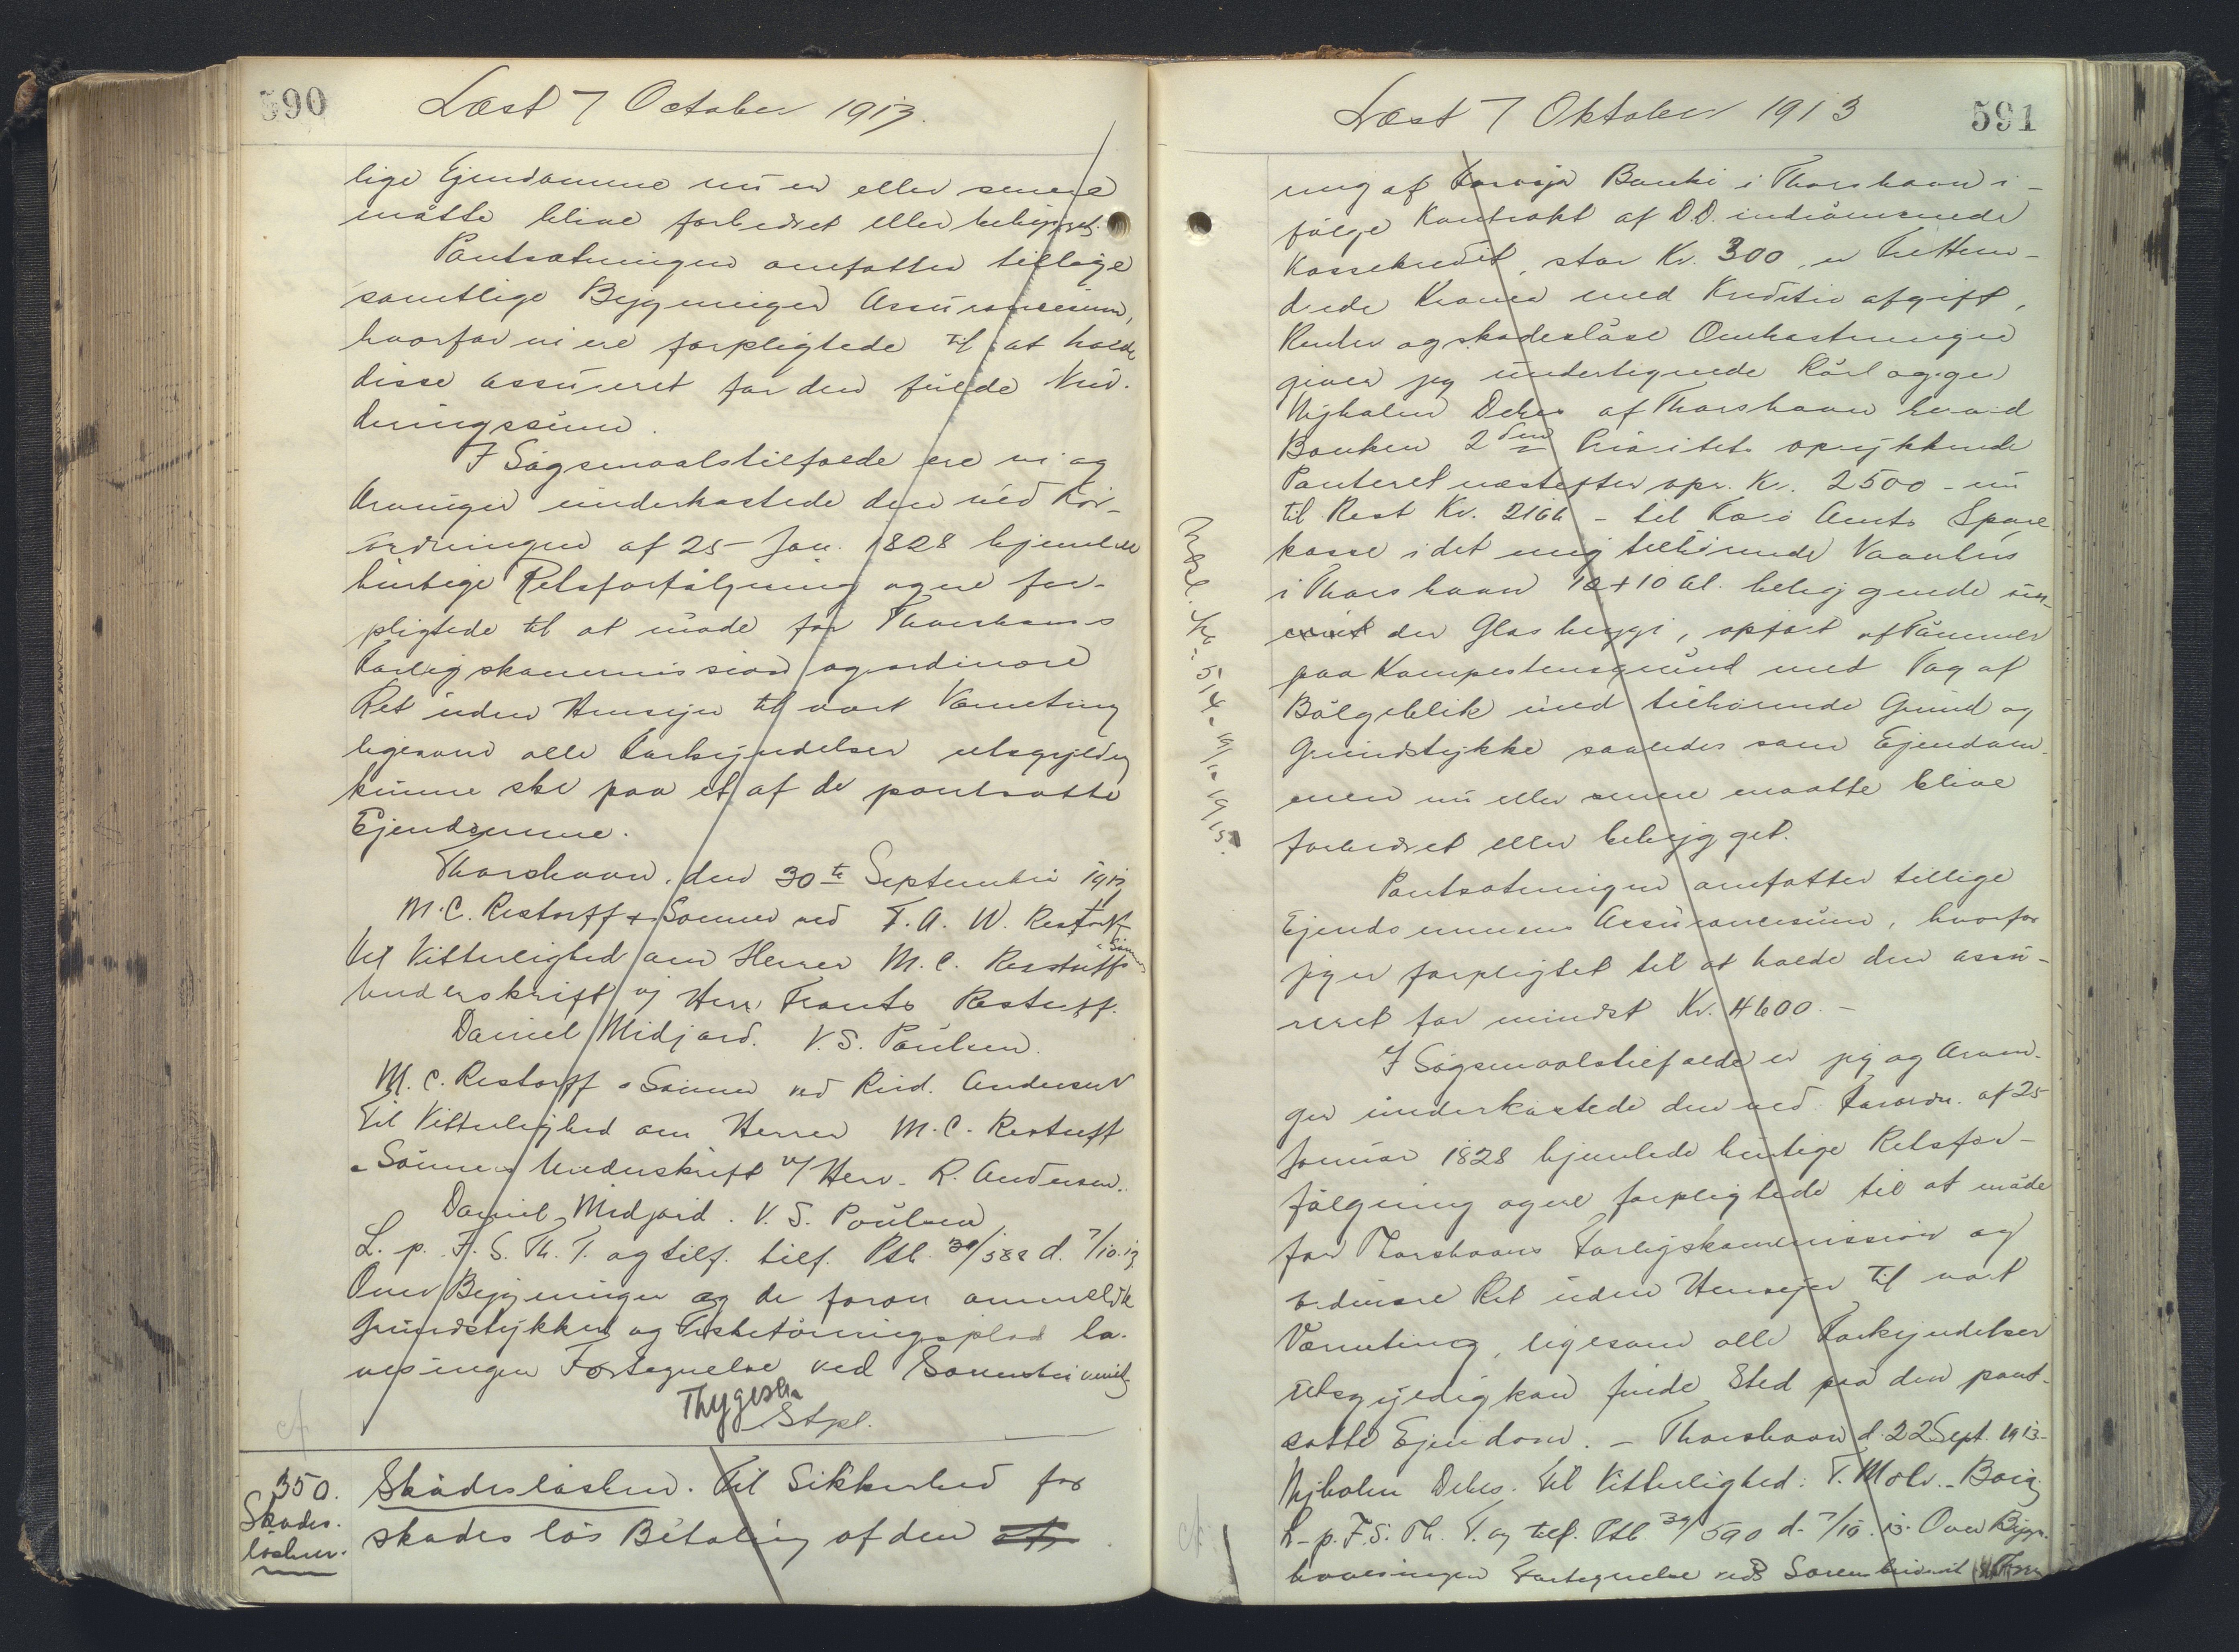 590
Læst 7 October 1913.
lige Ejendomme nu er eller senere
måtte blive forbedret eller bebygget.
Pantsætningen omfatter tillige
samtlige Bygninger Assurancesum,
hvorfor vi ere forpligtede til at holde
disse assureret for den fulde Vur-
deringssum.
I Søgsmaalstilfælde ere vi og
Arvinger underkastede den ved For-
ordningen af 25 Jan. 1828 hjemlede
hurtige Retsforfølgning og ere for-
pligtede til at møde for Thorshavns
Forligskommission og ordinære
Ret uden Hensyn til vort Værneting
ligesom alle Forkyndelser retsgyldig
kunne ske paa et af de pantsatte
Ejendomme.
Thorshavn, den 30te September 1913
M. C. Restorff & Sønner ved F. A. W. Restorff
Til Vitterlighed om Herrer M. C. Restorff & Sønners
Underskrift v/ Herr Frants Restorff.
Daniel Midjord. V. S. Poulsen.
M. C. Restorff & Sønner ved Rud. Andersen
Til Vitterlighed om Herrer M. C. Restorff
& Sønners Underskrift v/ Herr R. Andersen.
Daniel Midjord. V. S. Poulsen
L. p. F. S. Th. T. og tilf. tilf. Ptb. 39/588 d. 7/10.13
Over Bygninger og de foran anmeldte
Grundstykker og Fisketørringsplads ha-
ves ingen Fortegnelse ved Sorenskriveriet
Thygesen
Stpl.
350.
Skades-
løsbrev.
Skadesløsbrev. Til Sikkerhed for
skadesløs Betaling af den
591
Læst 7 Oktober 1913
mig af Føroya Banki i Thorshavn i-
følge Kontrakt af D.D. indrømmede
Kassekredit, stor Kr. 300, er Tre Hun-
drede Kroner med Kreditiv afgift,
Renter og skadesløse Omkostninger
giver jeg undertegnede
Nyholm Debes af Thorshavn herved
Banken 2den Prioritets oprykkende
Panteret næstefter opr. Kr. 2500 - nu
til Rest Kr. 2166 - til Færø Amts Spare
kasse i det mig tilhørende Vaanhus
i Thorshavn 10 + 10 Al. beliggende un-
der Glasbryggi, opført af Tømmer
paa Kampestensgrund med Tag af
Bølgeblik med tilhørende Grund og
Grundstykke saaledes som Ejendom-
men nu eller senere maatte blive
forbedret eller bebygget.
Pantsætningen omfatter tillige
Ejendommens Assurancesum, hvorfor
jeg er forpligtet til at holde den assu-
reret for mindst Kr. 4600.-
I Søgsmaalstilfælde er jeg og Arvin-
ger underkastede den ved Forordn. af 25
Januar 1828 hjemlede hurtige Retsfor-
følgning og ere forpligtede til at møde
for Thorshavns Forligskommission og
ordinære Ret uden Hensyn til vort
Værneting, ligesom alle Forkyndelser
retsgyldig kan finde Sted paa den pant-
satte Ejendom. - Thorshavn d. 22 Sept. 1913-
Nyholm Debes. Til Vitterlighed:
L. p. F. S. Th. T. og tilf. Ptb. 39/590 d. 7/10.13. Over Bygn.
haves ingen Fortegnelse ved Sorenskriveriet